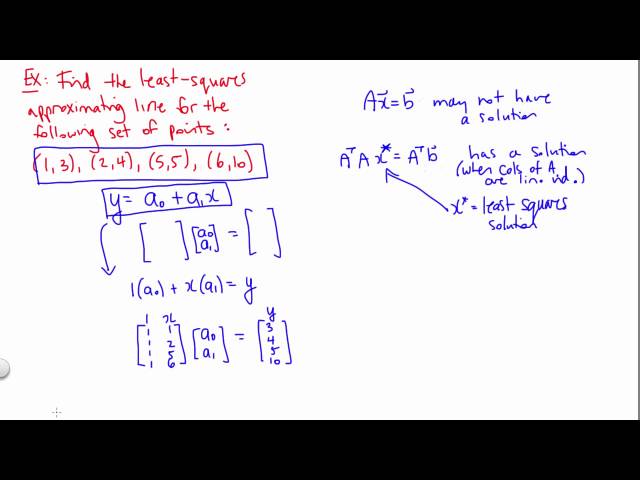 Ex: Find the least-squares
approximating line for the
following set of points:
(1,3), (2,4), (5,5), (6,10)
y = a₀ + a₁x
[ ] [a₀ a₁] = [ ]
1(a₀) + x(a₁) = y
1 x y
[1 1] [a₀] = [3]
[1 2] [a₁] [4]
[1 5] [5]
[1 6] [10]
Ax⃗ = b⃗ may not have
a solution
AᵀA x* = Aᵀb⃗ has a solution
(when cols of A
are lin. ind.)
x* = least squares
solution